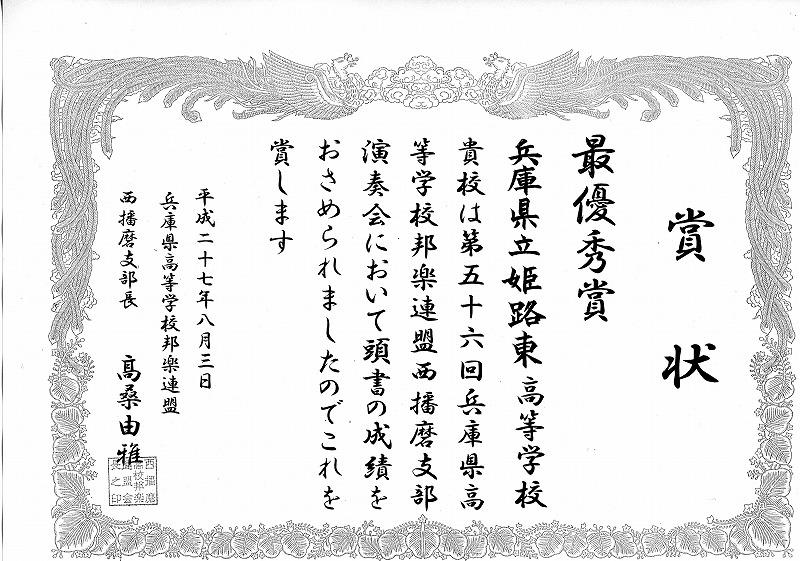 賞状
最優秀賞
兵庫県立姫路東高等学校
貴校は第五十六回兵庫県高
等学校邦楽連盟西播磨支部
演奏会において頭書の成績を
おさめられましたのでこれを
賞します
平成二十七年八月三日
兵庫県高等学校邦楽連盟
西播磨支部長 髙桑由雅